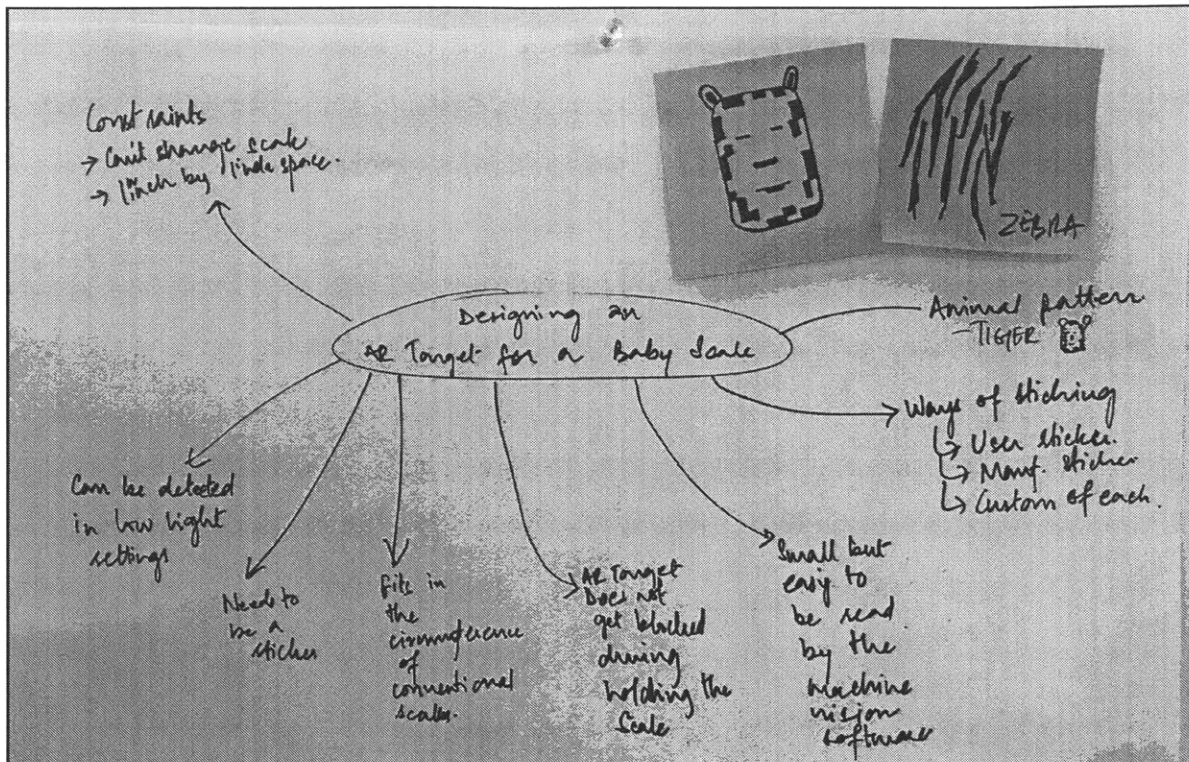 Constraints
→ Can't change scale
→ 1 inch by 1 inch space.
ZEBRA
Designing an
AR Target for a Baby Scale
Animal pattern
- TIGER
Ways of sticking
↳ User sticker.
↳ Manf. sticker
↳ Custom of each.
Can be detected
in low light
settings
Needs to
be a
sticker
fits in
the
circumference
of
conventional
scales.
AR Target
Does not
get blocked
during
holding the
Scale
Small but
easy to
be read
by the
machine
vision
software